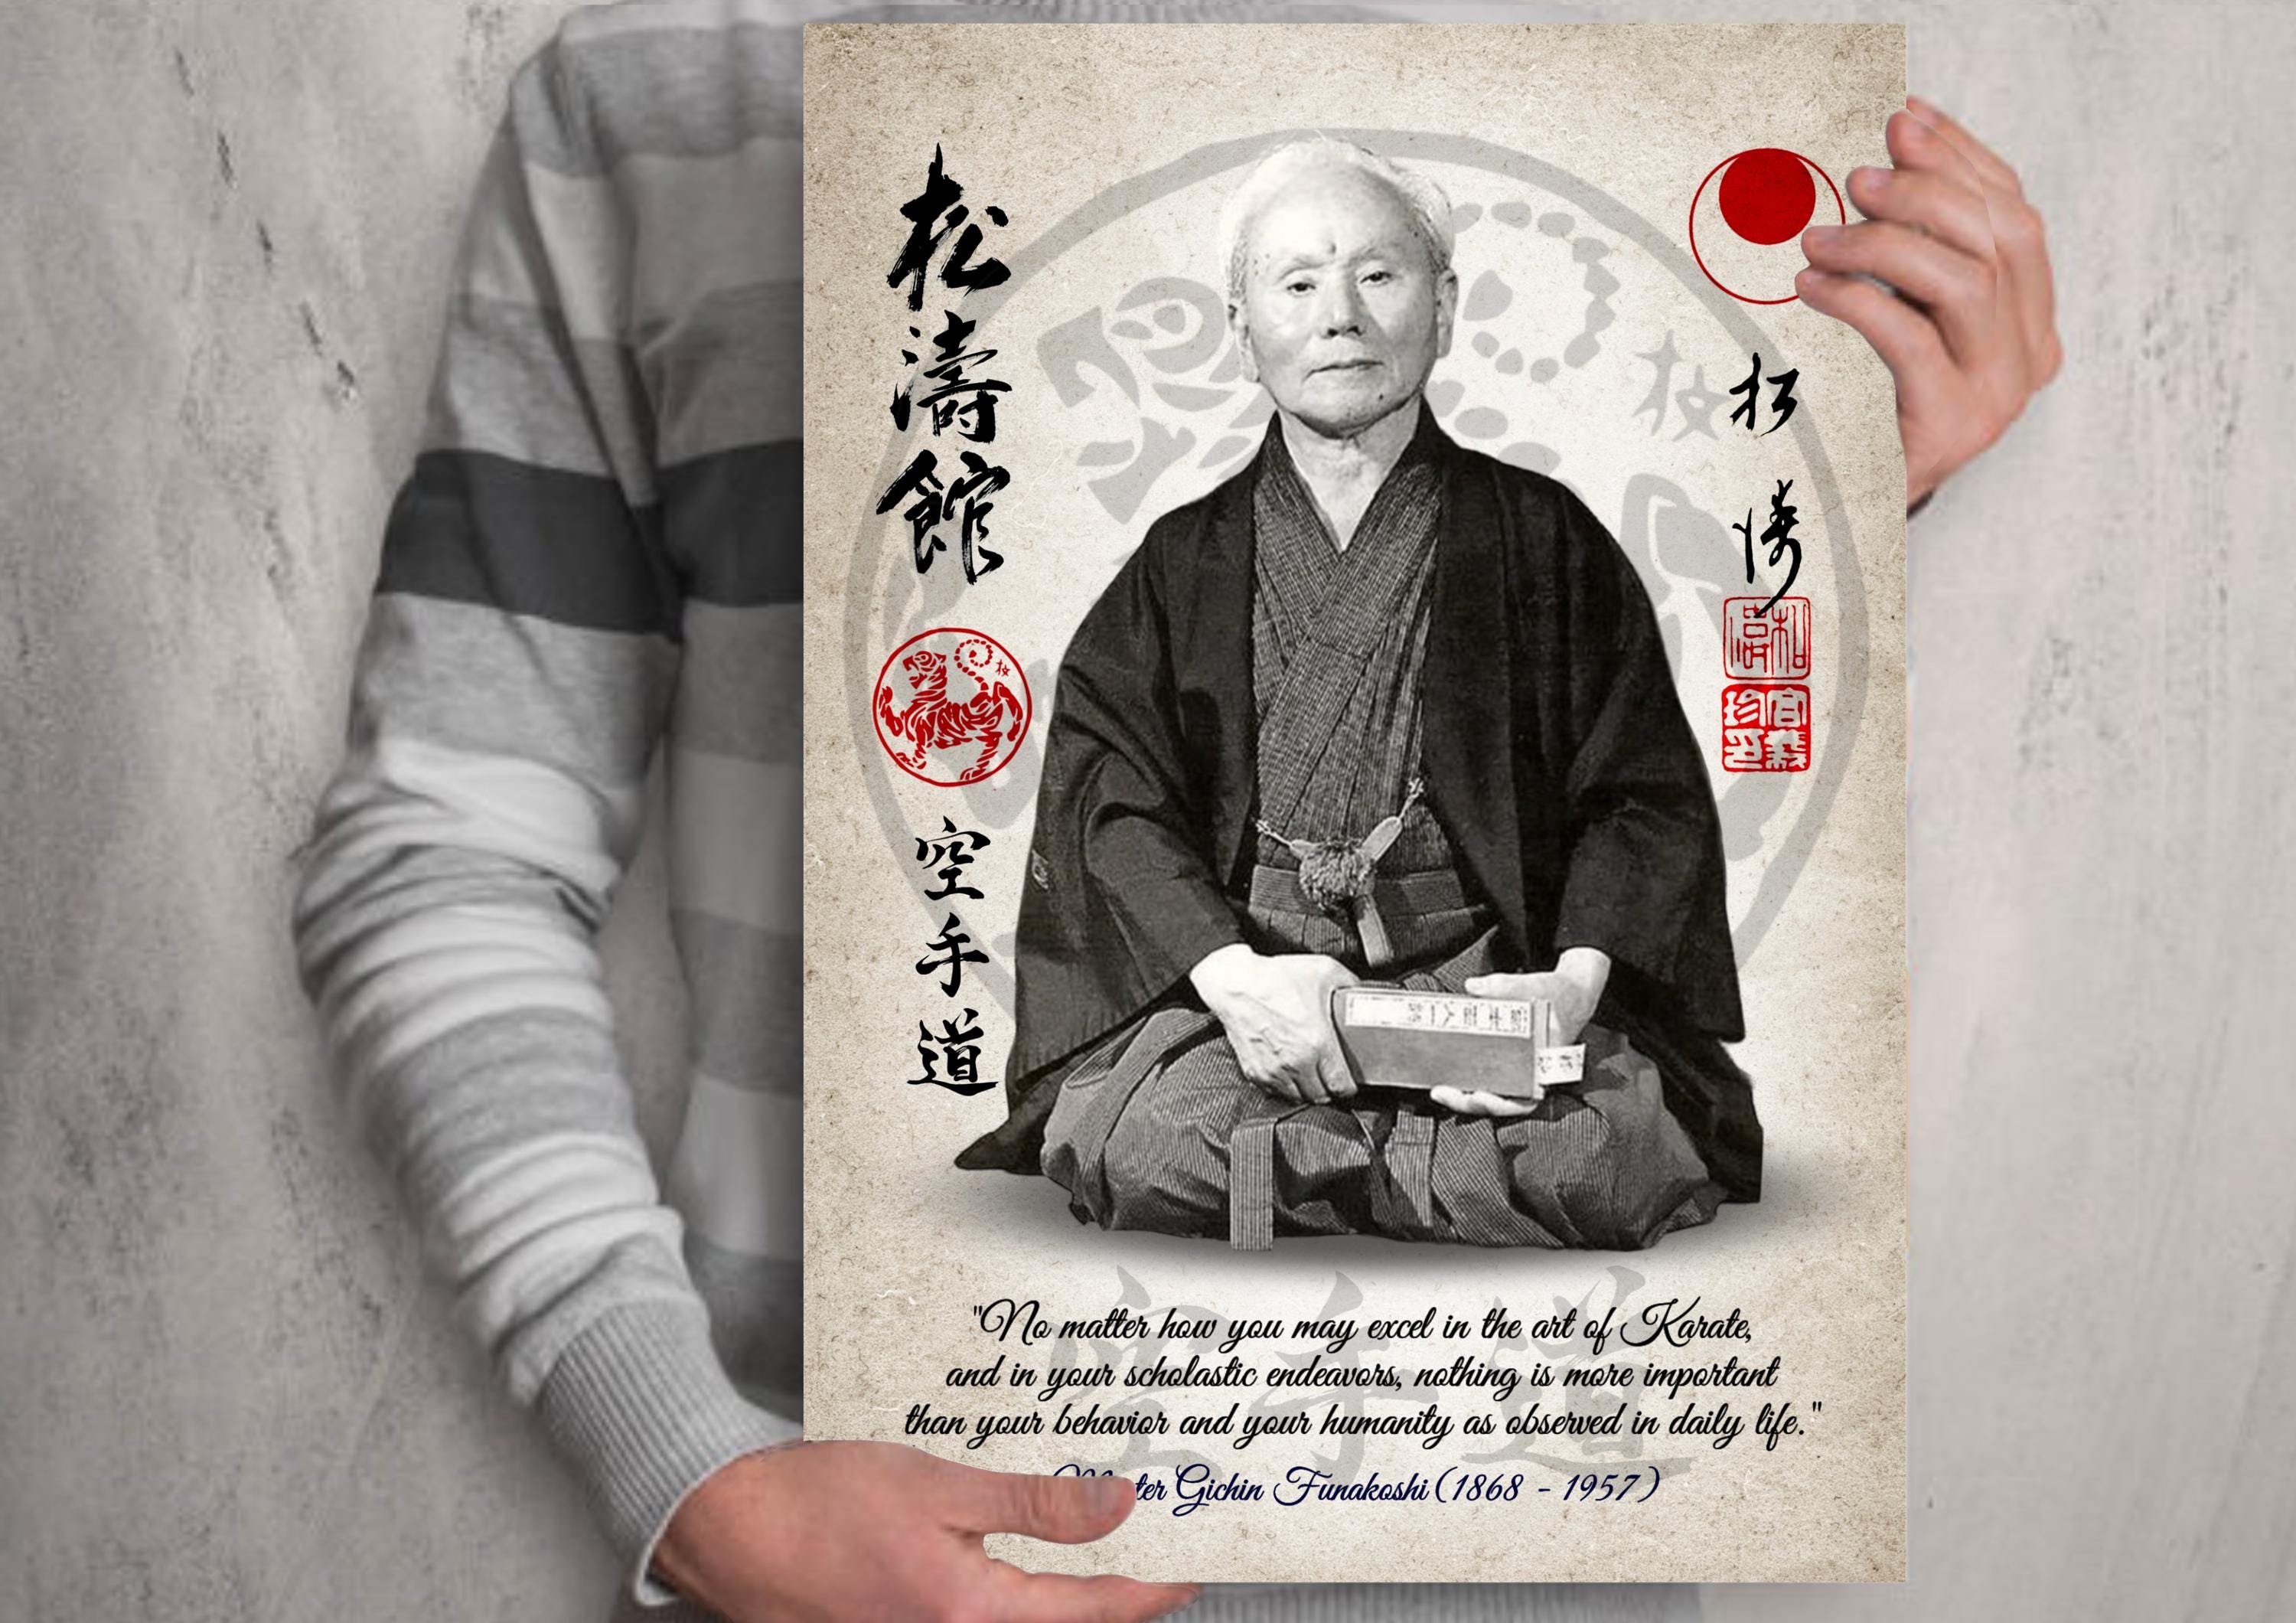 松濤館
空手道
松濤
"No matter how you may excel in the art of Karate,
and in your scholastic endeavors, nothing is more important
than your behavior and your humanity as observed in daily life."
Gichin Funakoshi (1868 - 1957)
空手道